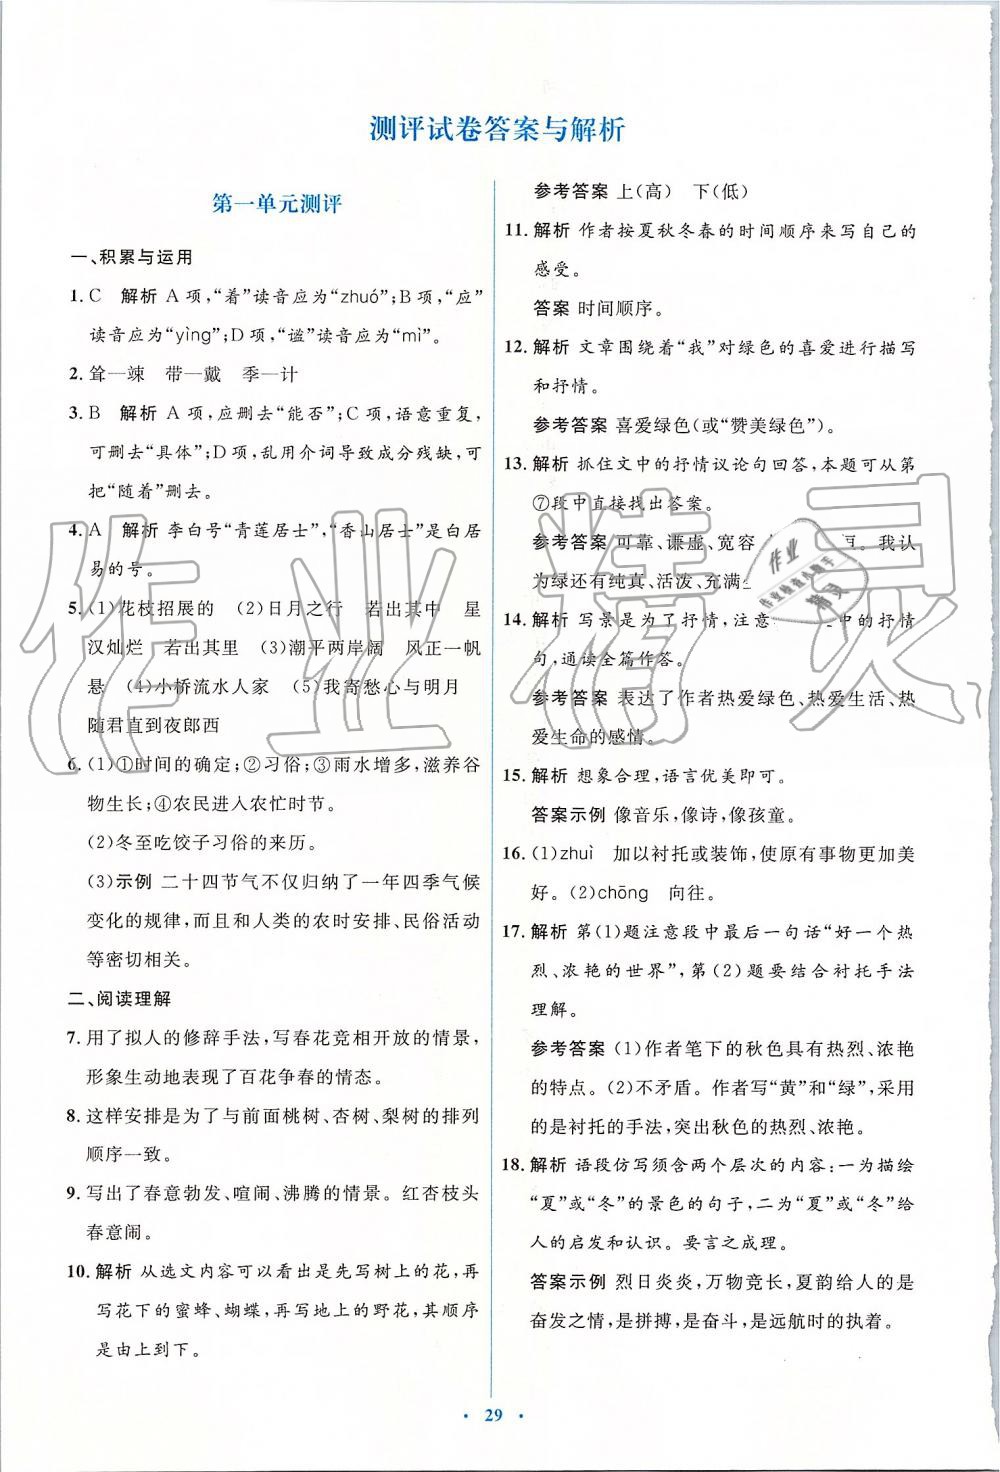 测评试卷答案与解析
第一单元测评
一、积累与运用
1. C 解析 A 项,“着”读音应为“zhuó”;B 项,“应”
读音应为“yìng”;D 项,“谧”读音应为“mì”。
2. 耸—竦 带—戴 季—计
3. B 解析 A 项,应删去“能否”;C 项,语意重复,
可删去“具体”;D 项,乱用介词导致成分残缺,可
把“随着”删去。
4. A 解析 李白号“青莲居士”,“香山居士”是白居
易的号。
5. (1)花枝招展的 (2)日月之行 若出其中 星
汉灿烂 若出其里 (3)潮平两岸阔 风正一帆
悬 (4)小桥流水人家 (5)我寄愁心与明月
随君直到夜郎西
6. (1)①时间的确定;②习俗;③雨水增多,滋养谷
物生长;④农民进入农忙时节。
(2)冬至吃饺子习俗的来历。
(3)示例 二十四节气不仅归纳了一年四季气候
变化的规律,而且和人类的农时安排、民俗活动
等密切相关。
二、阅读理解
7. 用了拟人的修辞手法,写春花竞相开放的情景,
形象生动地表现了百花争春的情态。
8. 这样安排是为了与前面桃树、杏树、梨树的排列
顺序一致。
9. 写出了春意勃发、喧闹、沸腾的情景。红杏枝头
春意闹。
10. 解析 从选文内容可以看出是先写树上的花,再
写花下的蜜蜂、蝴蝶,再写地上的野花,其顺序
是由上到下。
参考答案 上(高) 下(低)
11. 解析 作者按夏秋冬春的时间顺序来写自己的
感受。
答案 时间顺序。
12. 解析 文章围绕着“我”对绿色的喜爱进行描写
和抒情。
参考答案 喜爱绿色(或“赞美绿色”)。
13. 解析 抓住文中的抒情议论句回答,本题可从第
⑦段中直接找出答案。
参考答案 可靠、谦虚、宽容 。我认
为绿还有纯真、活泼、充满
14. 解析 写景是为了抒情,注意 中的抒情
句,通读全篇作答。
参考答案 表达了作者热爱绿色、热爱生活、热
爱生命的感情。
15. 解析 想象合理,语言优美即可。
答案示例 像音乐,像诗,像孩童。
16. (1)zhuì 加以衬托或装饰,使原有事物更加美
好。(2)chōng 向往。
17. 解析 第(1)题注意段中最后一句话“好一个热
烈、浓艳的世界”,第(2)题要结合衬托手法
理解。
参考答案 (1)作者笔下的秋色具有热烈、浓艳
的特点。(2)不矛盾。作者写“黄”和“绿”,采用
的是衬托的手法,突出秋色的热烈、浓艳。
18. 解析 语段仿写须含两个层次的内容:一为描绘
“夏”或“冬”的景色的句子,二为“夏”或“冬”给
人的启发和认识。要言之成理。
答案示例 烈日炎炎,万物竞长,夏韵给人的是
奋发之情,是拼搏,是奋斗,是远航时的执着。
作业精灵
作业
精灵
· 29 ·